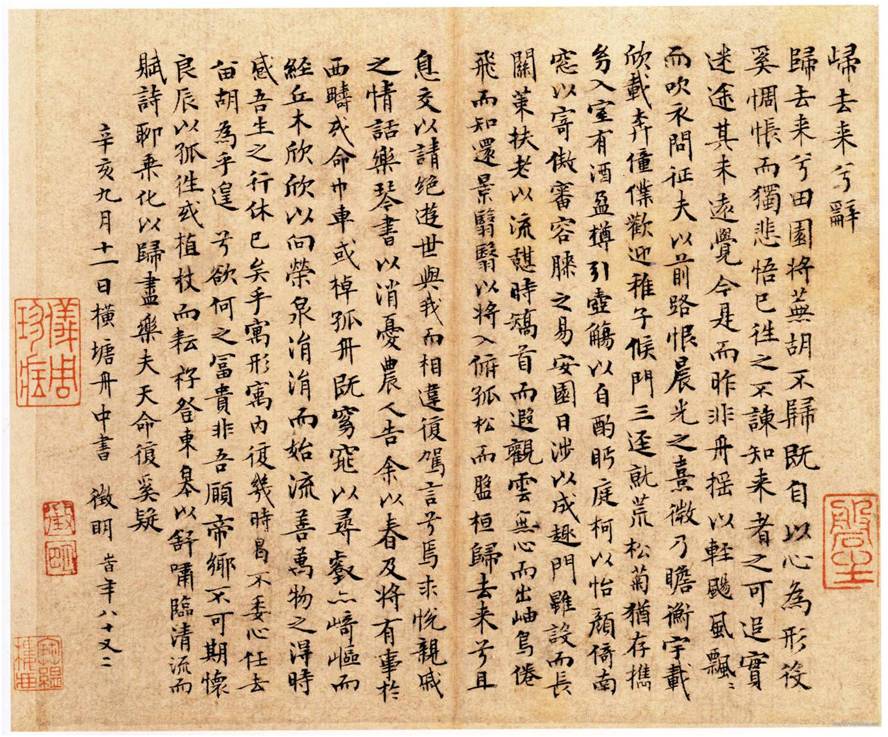 歸去来兮辭
歸去来兮田園将蕪胡不歸既自以心為形役
奚惆悵而獨悲悟已往之不諫知来者之可追實
迷途其未遠覺今是而昨非舟揺以輕颺風飄〻
而吹衣問征夫以前路恨晨光之熹微乃瞻衡宇載
欣載奔僮僕歡迎稚子候門三迳就荒松菊猶存攜
幼入室有酒盈樽引壺觴以自酌眄庭柯以怡顔倚南
窓以寄傲審容膝之易安園日涉以成趣門雖設而長
關策扶老以流憩時矯首而遐觀雲無心而出岫鳥倦
飛而知還景翳翳以将入俯孤松而盤桓歸去来兮且
息交以請絶遊世與我而相違復駕言兮焉求悅親戚
之情話樂琴書以消憂農人告余以春及将有事於
西疇或命巾車或棹孤舟既窈窕以尋壑亦崎嶇而
經丘木欣欣以向榮泉涓涓而始流善萬物之得時
感吾生之行休已矣乎寓形寓内復幾時曷不委心任去
留胡為乎遑兮欲何之冨貴非吾願帝郷不可期懷
良辰以孤往或植杖而耘耔登東皋以舒嘯臨清流而
賦詩聊乘化以歸盡樂夫天命復奚疑
辛亥九月十一日橫塘舟中書 徵明 時年八十又二
儀周珍藏
徵明